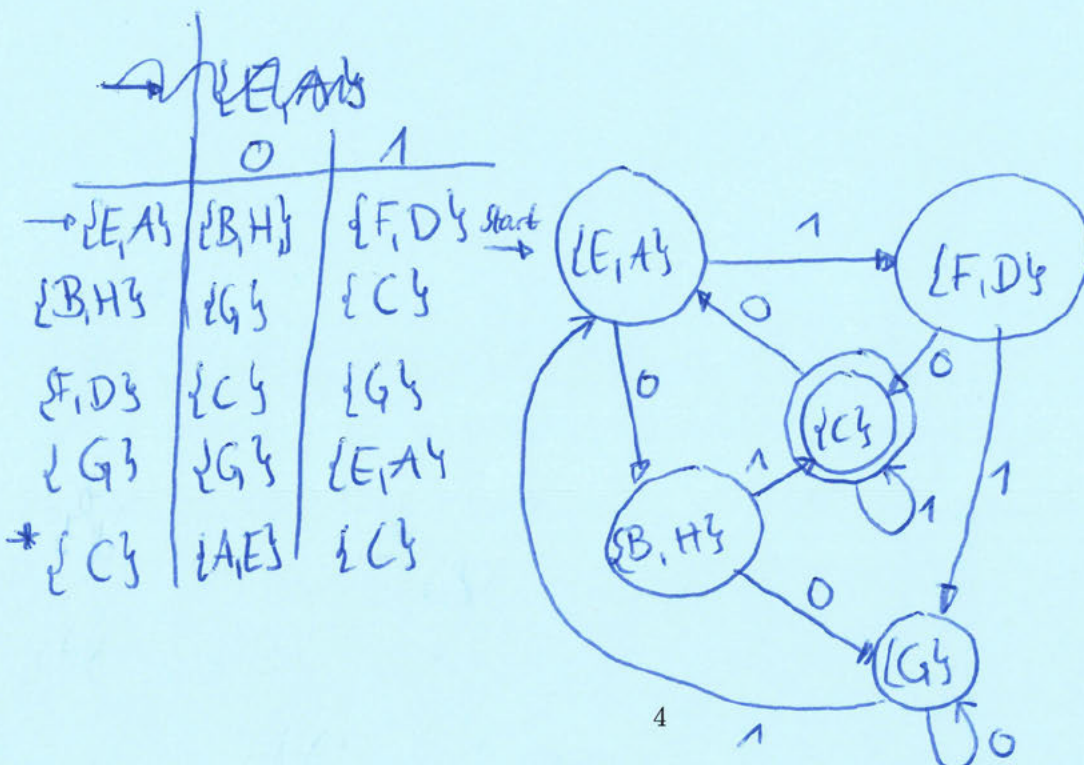 → {E,A}
0 1
→{E,A} {B,H} {F,D}
{B,H} {G} {C}
{F,D} {C} {G}
{G} {G} {E,A}
* {C} {A,E} {C}
Start
{E,A}
1
{F,D}
0
0
0
{C}
1
1
1
{B,H}
0
{G}
1
0
4